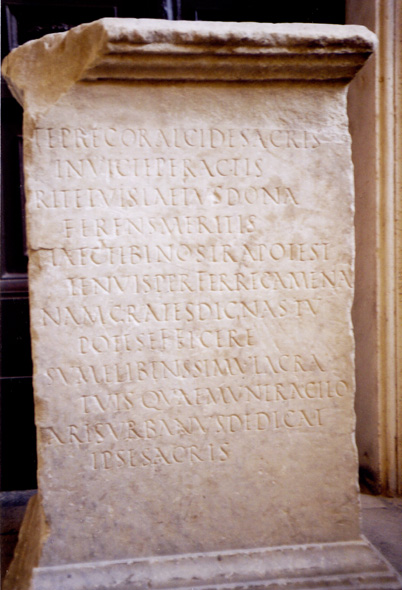 TE PRECOR ALCIDE SACRIS
INVICTE PERACTIS
RITE TVIS LAETVS DONA
FERENS MERITIS
HAEC TIBI NOSTRA POTEST
TENVIS PERFERRE CAMENA
NAM GRATES DIGNAS TV
POTES EFFICERE
SVME LIBENS SIMVLACRA
TVIS QVAE MVNERA CILO
ARIS VRBANVS DEDICAT
IPSE SACRIS